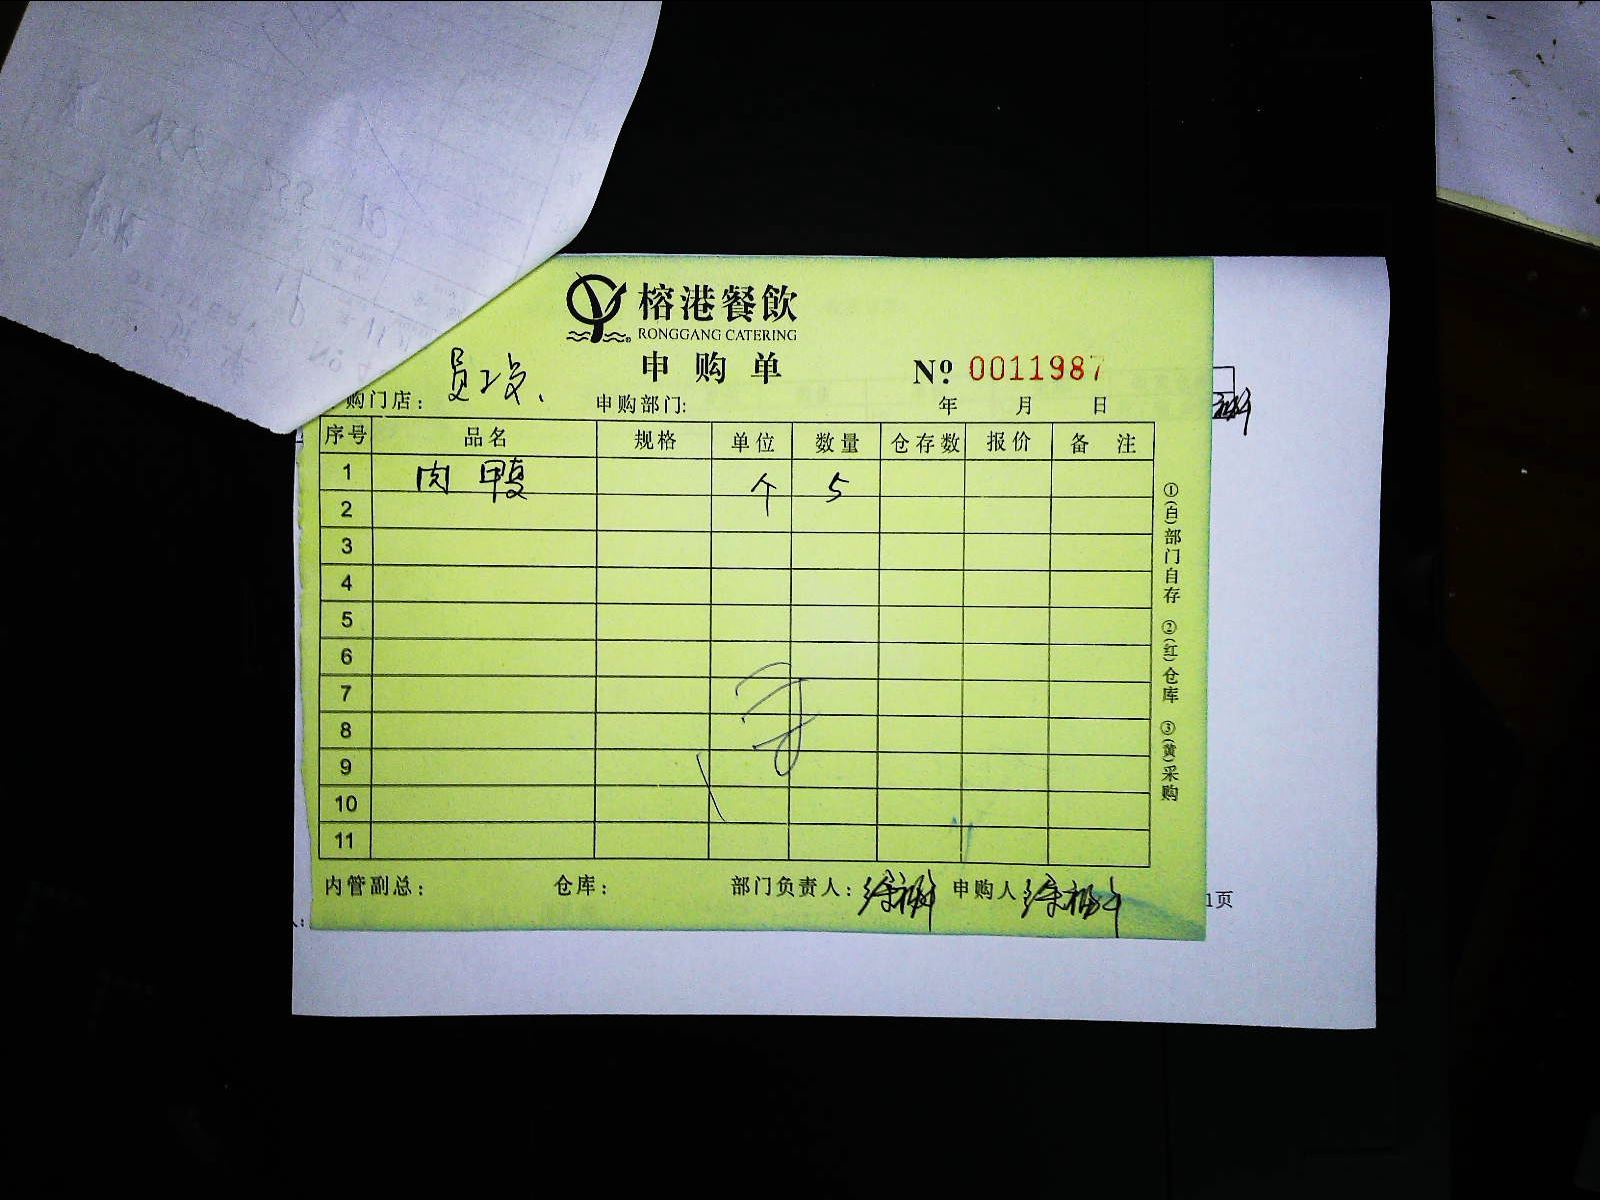 榕港餐飲
RONGGANG CATERING
申购单
Nº 0011987
购门店： 员工 申购部门: 年 月 日
序号 品名 规格 单位 数量 仓存数 报价 备注
1 肉鸭 个 5
2
3
4
5
6
7
8
9
10
11
①(白)部门自存 ②(红)仓库 ③(黄)采购
内管副总： 仓库： 部门负责人： 申购人
1页